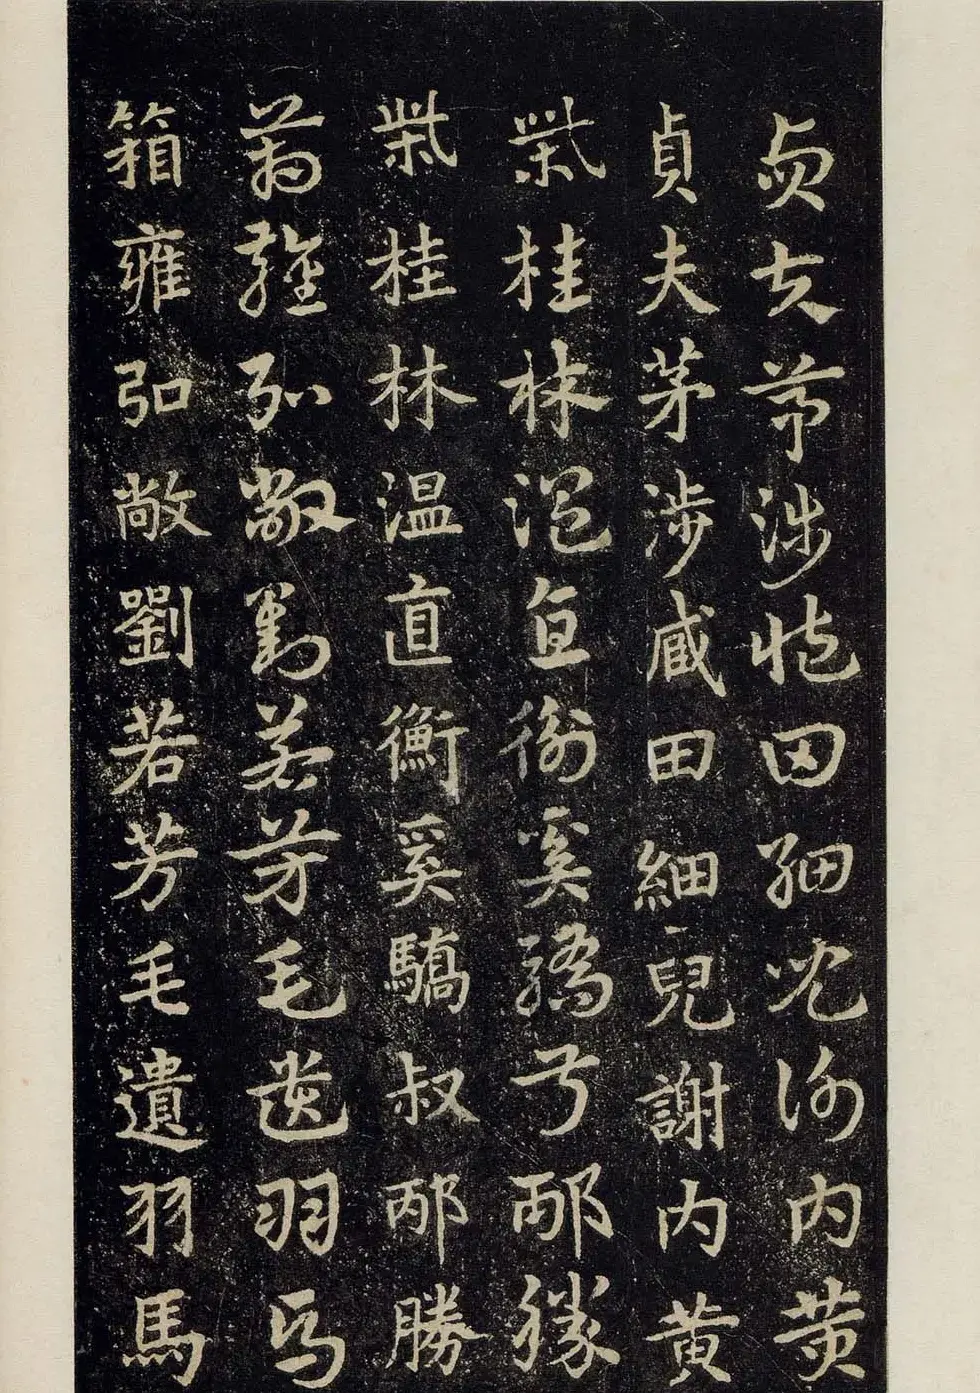 貞夫茅涉臧田細兒謝内黄
貞夫茅涉臧田細兒謝内黄
柴桂林温直衡奚驕叔邴勝
柴桂林温直衡奚驕叔邴勝
箱雍弘敞劉若芳毛遺羽馬
箱雍弘敞劉若芳毛遺羽馬